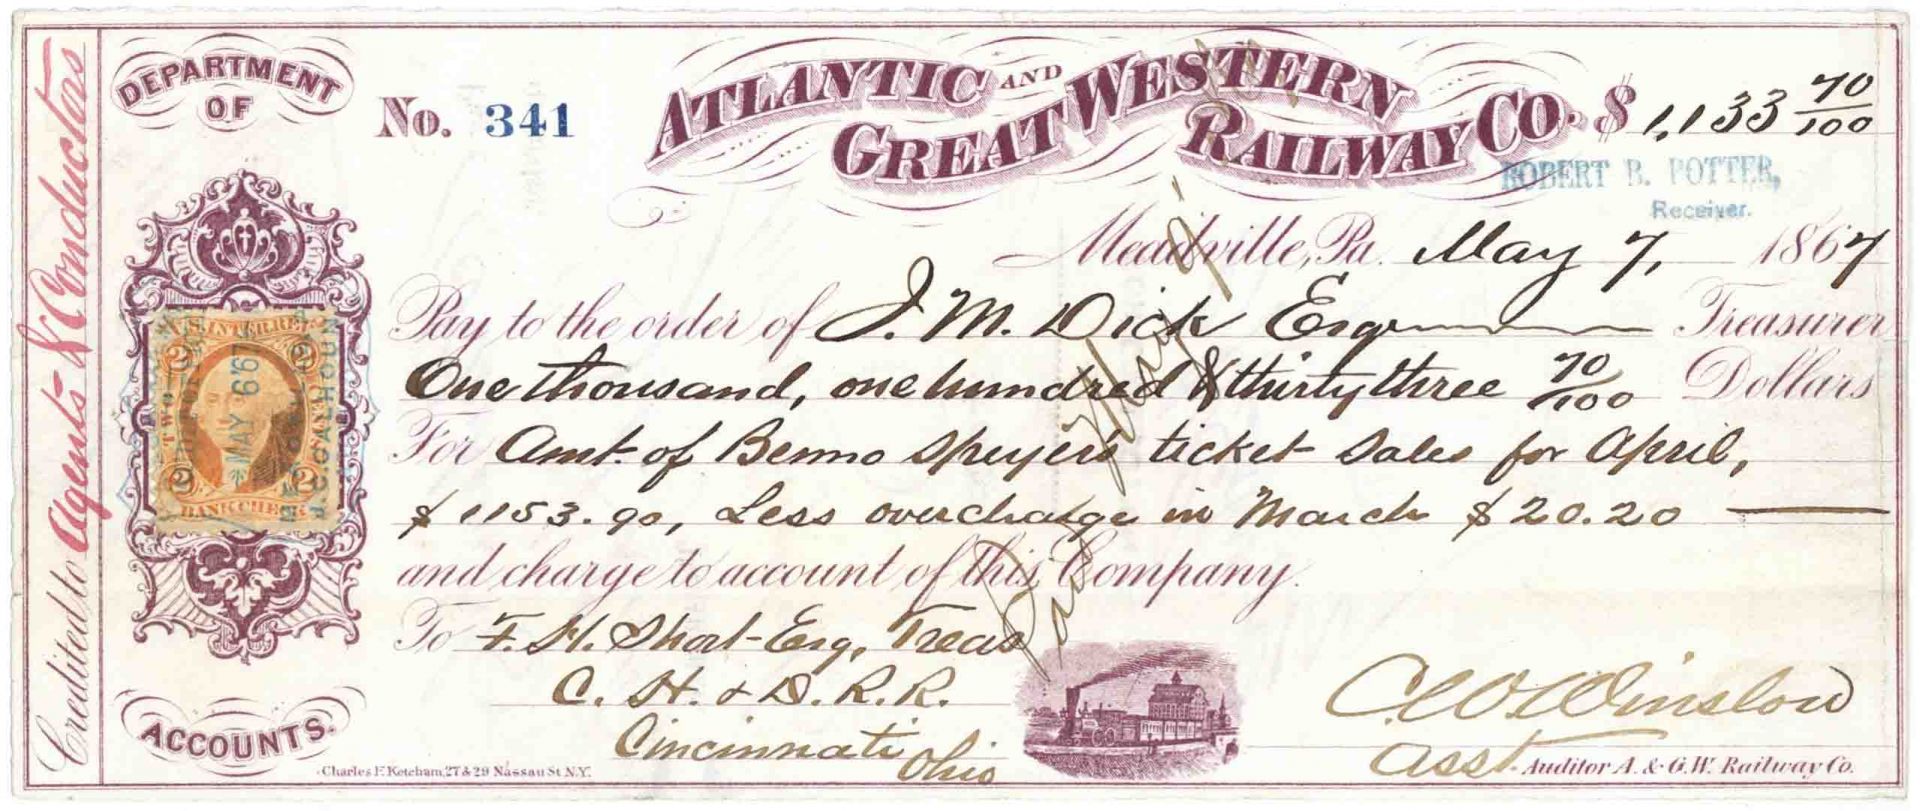 Credited to Agents & Conductors
DEPARTMENT
OF
ACCOUNTS.
No. 341
ATLANTIC AND
GREAT WESTERN
RAILWAY CO.
$ 1,133 70/100
ROBERT B. POTTER,
Receiver.
Meadville, Pa. May 7, 1867
Pay to the order of J. M. Dick Esqr Treasurer
One thousand, one hundred & thirty three 70/100 Dollars
For Amt. of Benno Speyer's ticket sales for April,
$1153.90, Less overcharge in March $20.20
and charge to account of this Company.
To F. H. Short Esq, Treas
C. H. & D. R. R.
Cincinnati
Ohio
Paid May 9
U.S. INTER. REV.
2 2
TWO CENTS
MAY 6 67
J. C. CALHOUN
2 2
BANK CHECK
C W Winslow
Asst Auditor A. & G. W. Railway Co.
Charles F. Ketcham, 27 & 29 Nassau St N.Y.